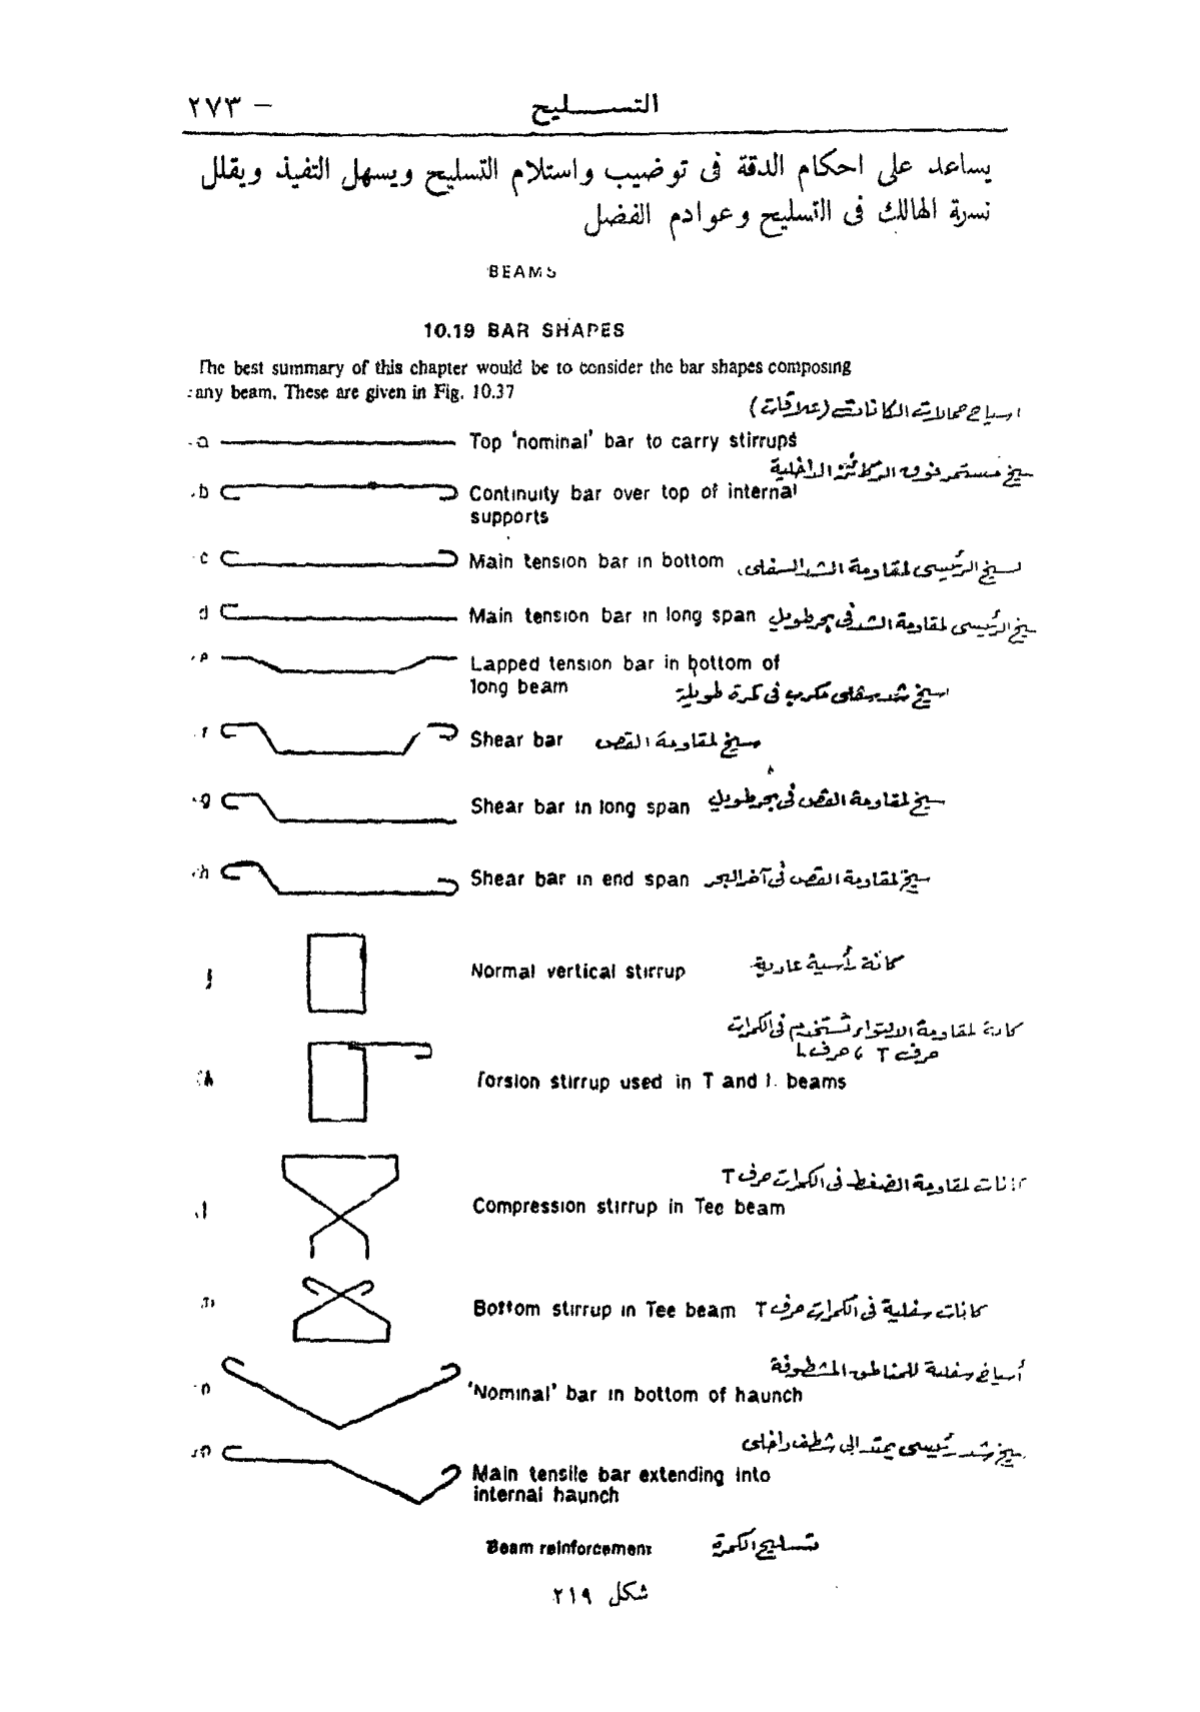 ٢٧٣ –
التسليح
يساعد على احكام الدقة فى توضيب واستلام التسليح ويسهل التفيذ ويقلل
نسبة الهالك فى التسليح وعوادم الفضل
BEAMS
10.19 BAR SHAPES
The best summary of this chapter would be to consider the bar shapes composing
any beam. These are given in Fig. 10.37
اسياخ حمالات الكانات (علاقات)
a Top 'nominal' bar to carry stirrups
سيخ مستمر فوق الركائز الداخلية
b Continuity bar over top of internal
supports
c Main tension bar in bottom السيخ الرئيسى لمقاومة الشد السفلى
d Main tension bar in long span سيخ الرئيسى لمقاومة الشد فى بحر طويل
e Lapped tension bar in bottom of
long beam سيخ شد سفلى مكرب فى كمرة طويلة
f Shear bar سيخ لمقاومة القص
g Shear bar in long span سيخ لمقاومة القص فى بحر طويل
h Shear bar in end span سيخ لمقاومة القص فى آخر البحر
j Normal vertical stirrup كانة رأسية عادية
كانة لمقاومة الالتواء تستخدم فى الكمرات
حرف T ، حرف L
k Torsion stirrup used in T and L beams
كانات لمقاومة الضغط فى الكمرات حرف T
l Compression stirrup in Tee beam
m Bottom stirrup in Tee beam كانات سفلية فى الكمرات حرف T
أسياخ سفلية للمناطق المشطوفة
n 'Nominal' bar in bottom of haunch
سيخ شد رئيسى يمتد الى شطف داخلى
Main tensile bar extending into
internal haunch
Beam reinforcement تسليح الكمرة
شكل ٢١٩